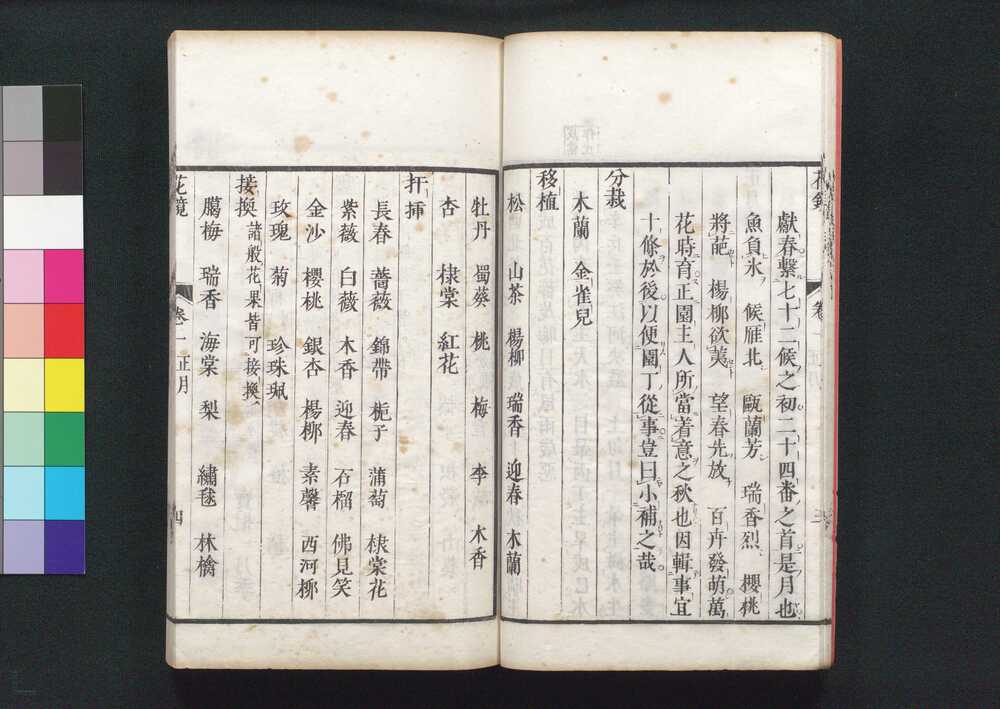 獻春繫七十二候之初二十四番之首是月也
魚負氷　候雁北　甌蘭芳　瑞香烈　櫻桃
將葩　楊柳欲荑　望春先放　百卉發萌萬
花時育正園主人所當着意之秋也因輯事宜
十條於後以便園丁從事豈曰小補之哉
分栽
木蘭　金雀兒
移植
松　山茶　楊柳　瑞香　迎春　木蘭
牡丹　蜀葵　桃　梅　李　木香
杏　棣棠　紅花
扦挿
長春　薔薇　錦帶　梔子　蒲萄　棣棠花
紫薇　白薇　木香　迎春　石榴　佛見笑
金沙　櫻桃　銀杏　楊柳　素馨　西河柳
玫瑰　菊　珍珠珮
接換　諸般花果皆可接換
臈梅　瑞香　海棠　梨　繡毬　林檎
花鏡　卷一　正月　四